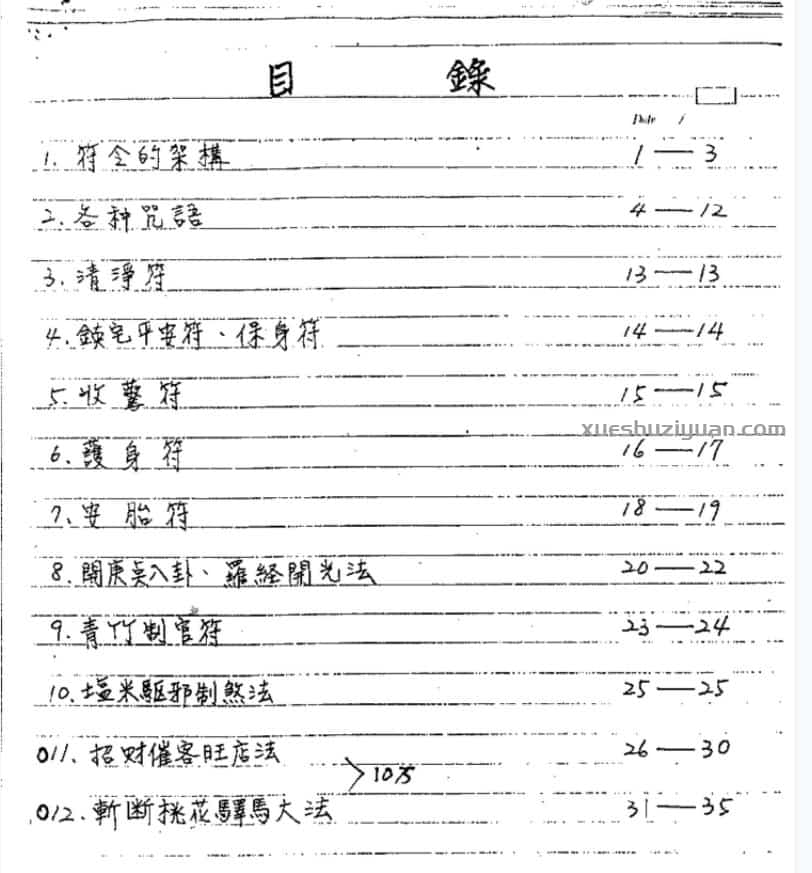 目 錄
Date /
1. 符令的架構 1 — 3
2. 各种咒語 4 — 12
3. 清淨符 13 — 13
4. 鎮宅平安符、保身符 14 — 14
5. 收驚符 15 — 15
xueshuziyuan.com
6. 護身符 16 — 17
7. 安胎符 18 — 19
8. 開庚真八卦、羅経開光法 20 — 22
9. 青竹制官符 23 — 24
10. 塩米駆邪制煞法 25 — 25
011. 招财催客旺店法 26 — 30
012. 斬断挑花驛馬大法 31 — 35